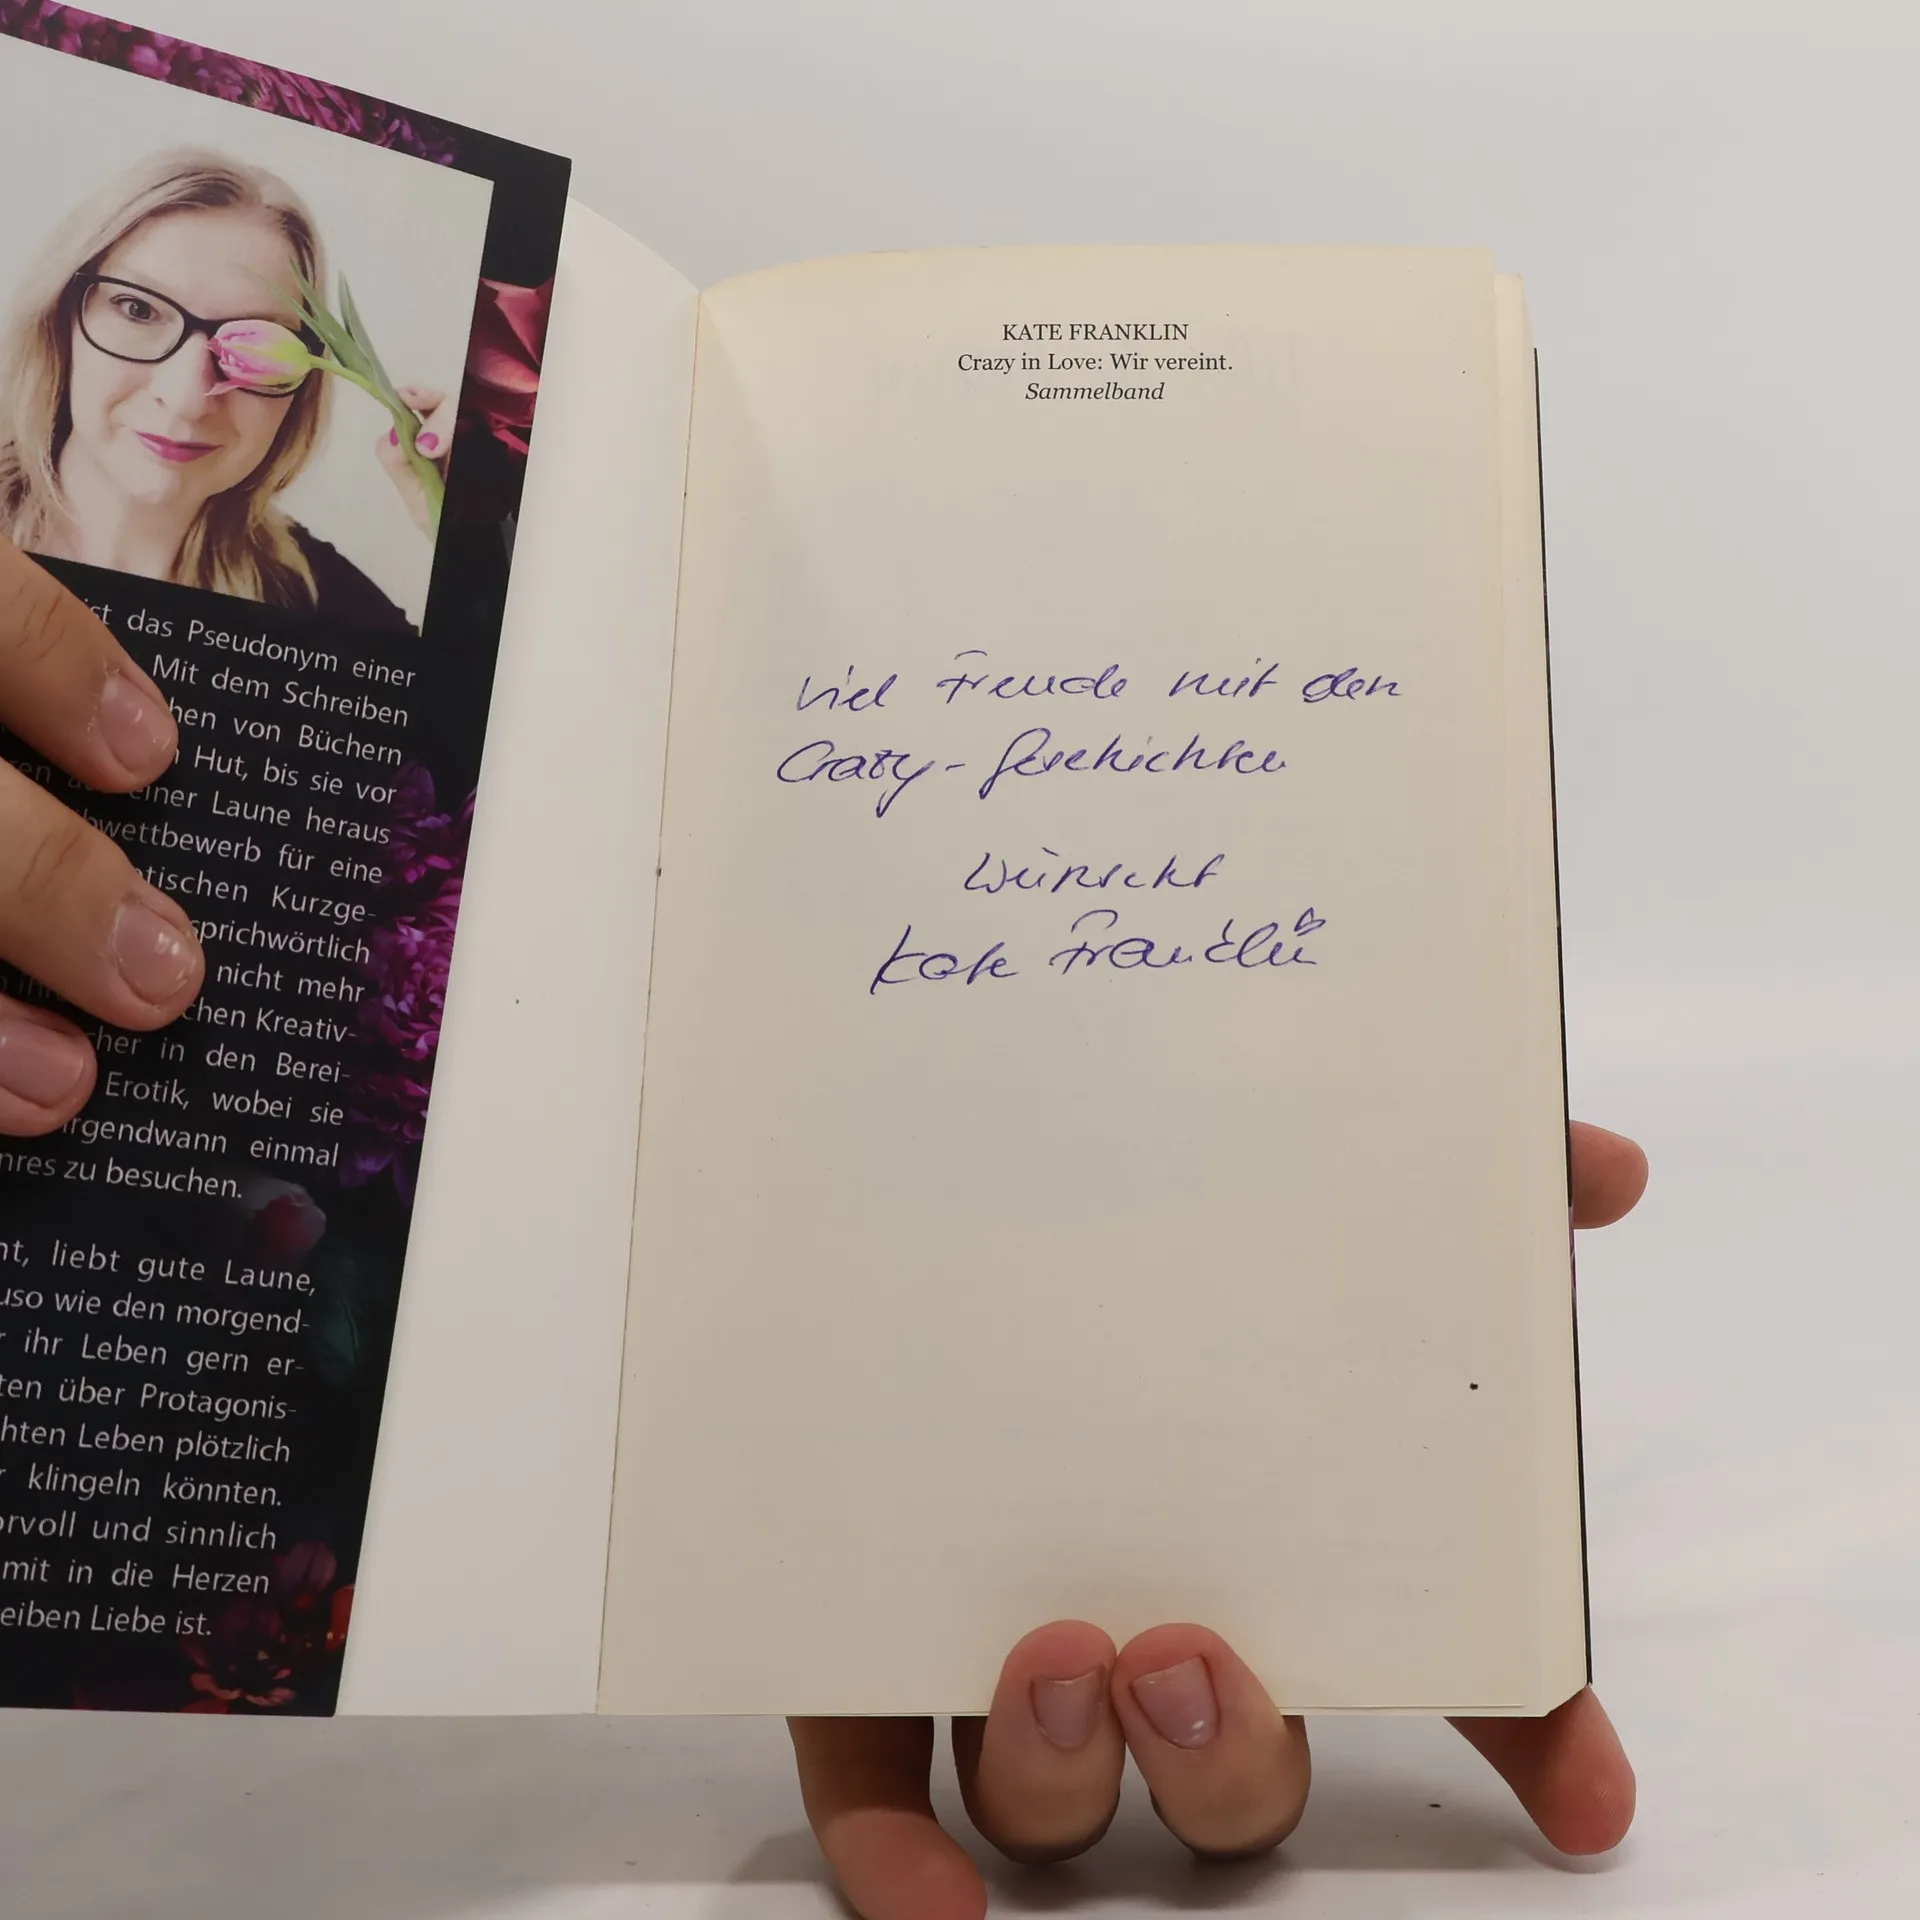 ist das Pseudonym einer
Mit dem Schreiben
hen von Büchern
Hut, bis sie vor
einer Laune heraus
bwettbewerb für eine
tischen Kurzge-
sprichwörtlich
nicht mehr
chen Kreativ-
cher in den Berei-
Erotik, wobei sie
irgendwann einmal
nres zu besuchen.
nt, liebt gute Laune,
uso wie den morgend-
ihr Leben gern er-
ten über Protagonis-
hten Leben plötzlich
r klingeln könnten.
orvoll und sinnlich
mit in die Herzen
eiben Liebe ist.
KATE FRANKLIN
Crazy in Love: Wir vereint.
Sammelband
Viel Freude mit den
Crazy-Geschichten
wünscht
Kate Franklin